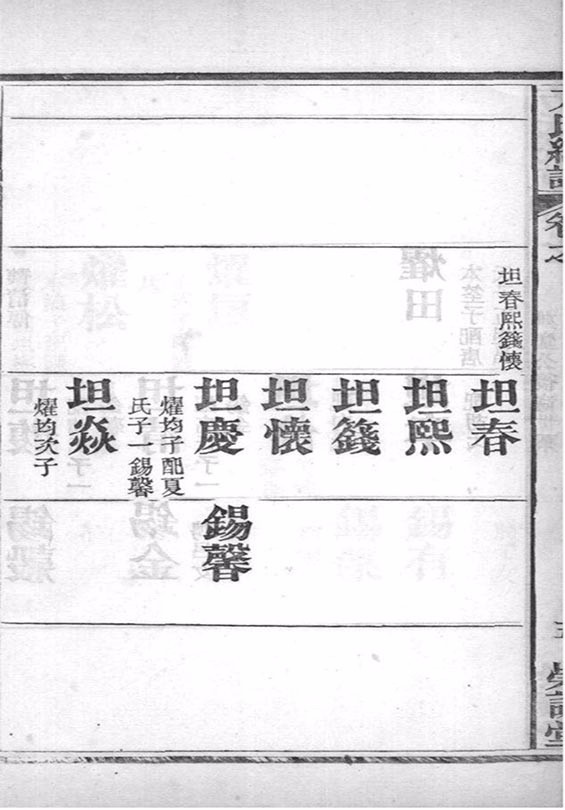 卷之
坦春熙籛懷
坦春
坦熙
坦籛
坦懷
坦慶
燿均子配夏
氏子一錫馨
錫馨
坦焱
燿均次子